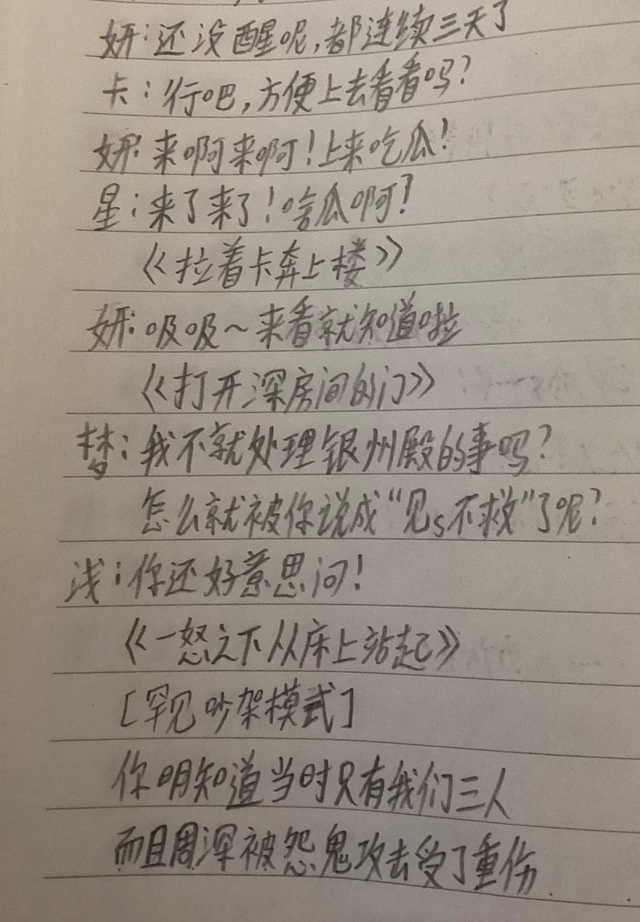 妍:还没醒呢,都连续三天了
卡:行吧,方便上去看看吗?
妍:来啊来啊!上来吃瓜!
星:来了来了!啥瓜啊?
《拉着卡奔上楼》
妍:吸吸~来看就知道啦
《打开深房间的门》
梦:我不就处理银州殿的事吗?
怎么就被你说成“见s不救”了呢?
浅:你还好意思问!
《一怒之下从床上站起》
[罕见吵架模式]
你明知道当时只有我们三人
而且周深被怨鬼攻击受了重伤